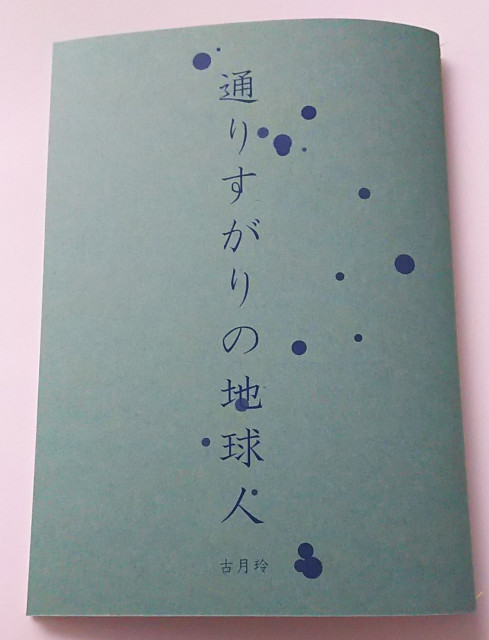 通りすがりの地球人
古月玲